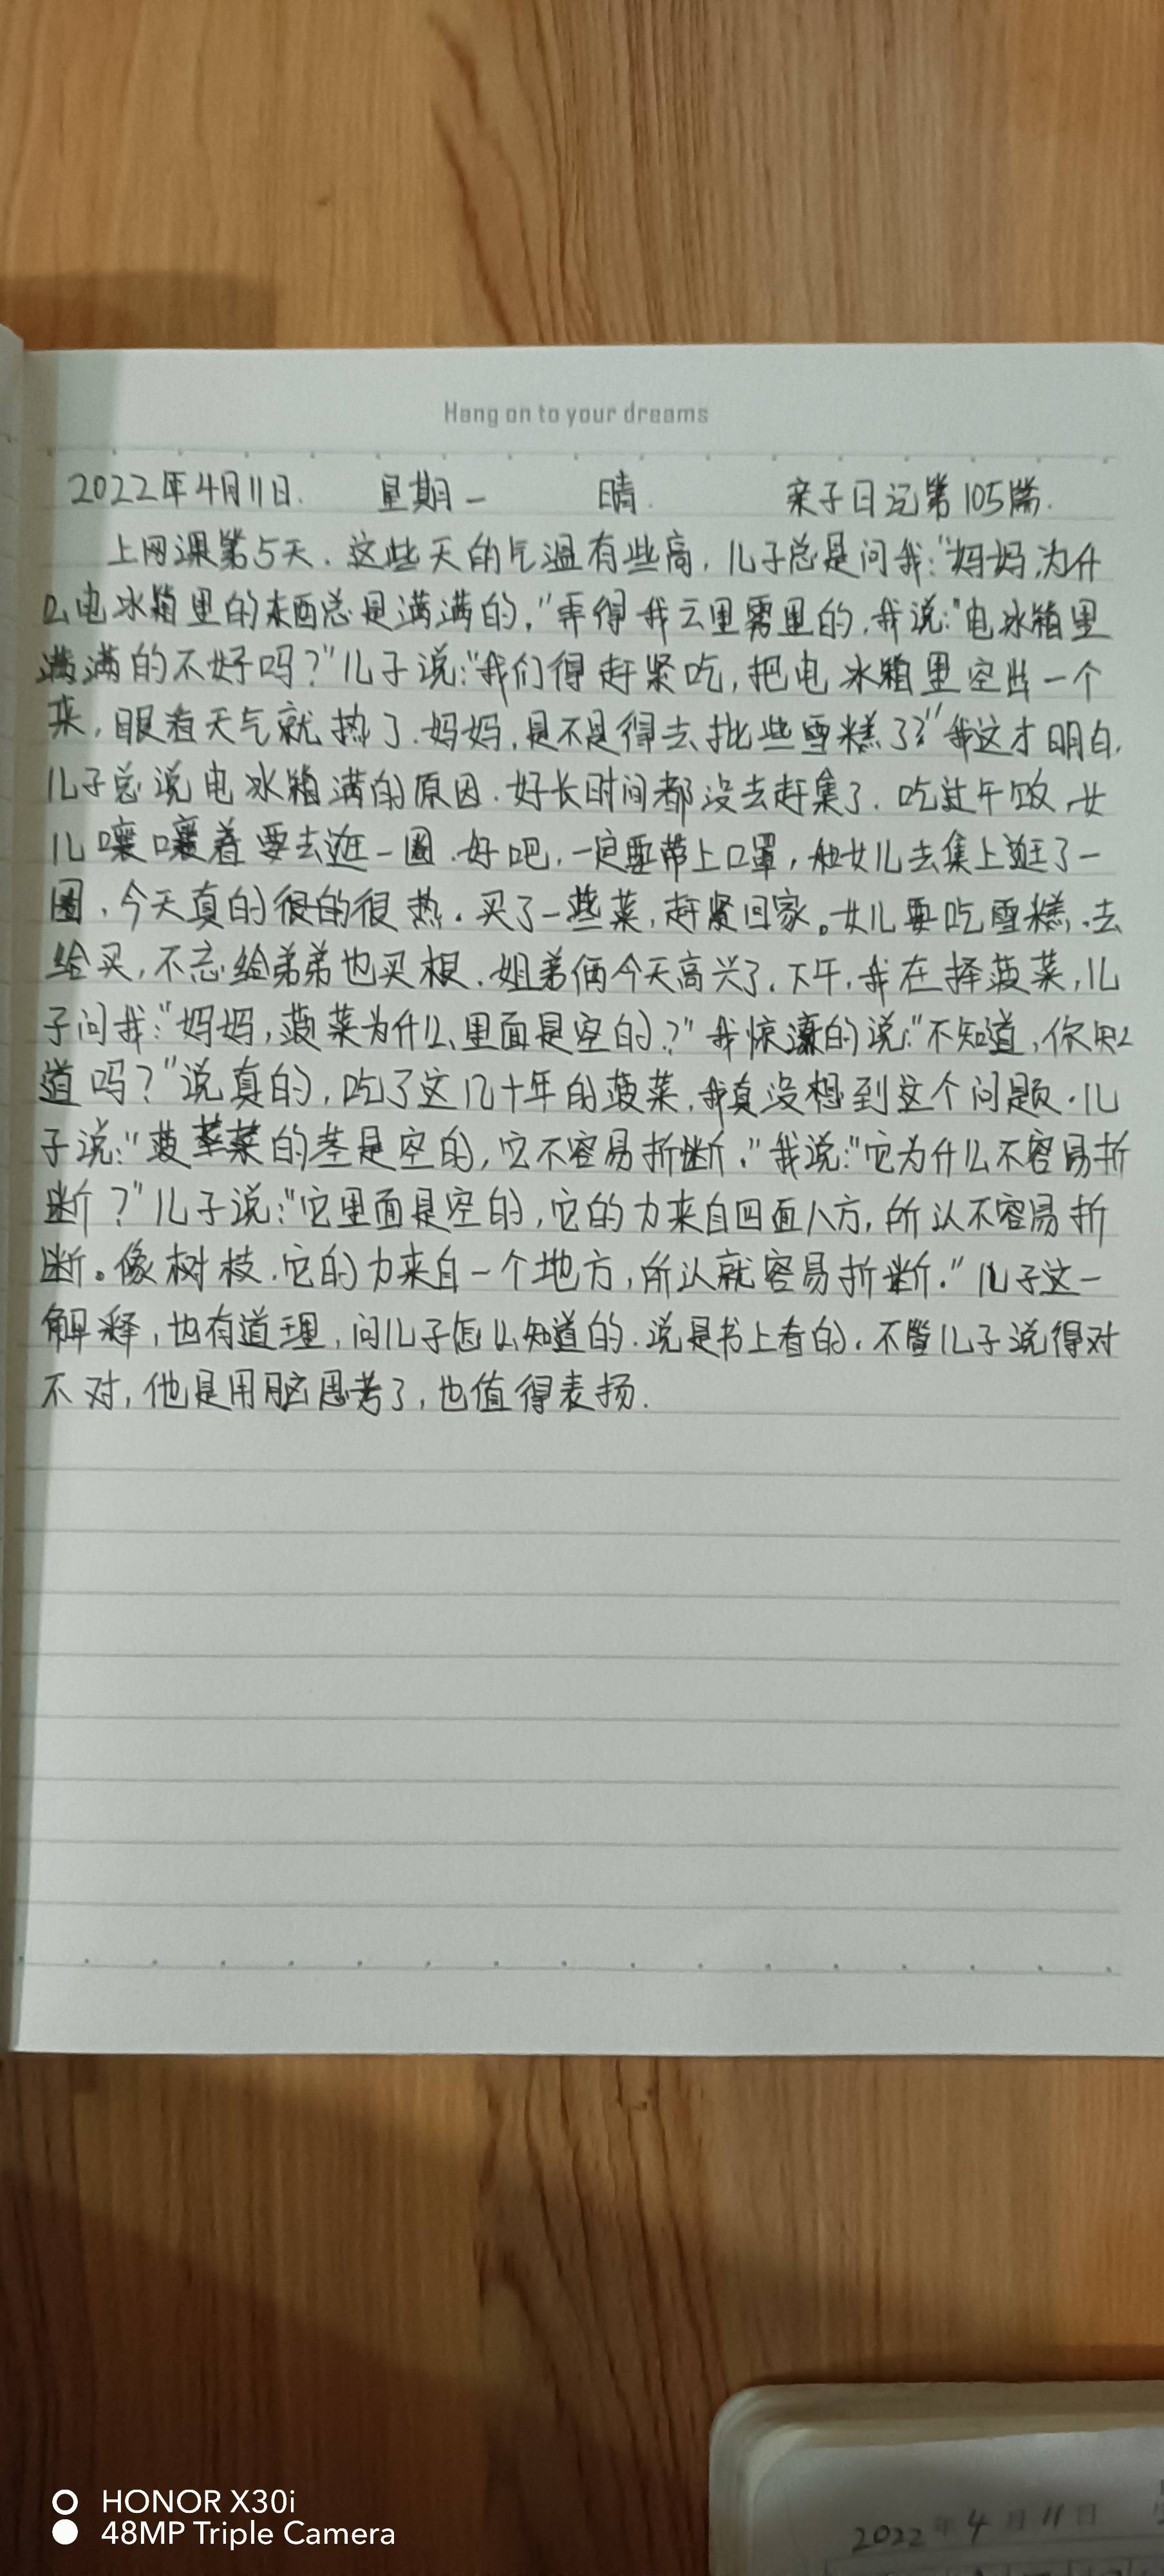 Hang on to your dreams
2022年4月11日. 星期一 晴. 亲子日记第105篇.
上网课第5天.这些天的气温有些高,儿子总是问我:"妈妈,为什
么电冰箱里的东西总是满满的,"弄得我云里雾里的,我说:"电冰箱里
满满的不好吗?"儿子说:"我们得赶紧吃,把电冰箱里空出一个
来,眼看天气就热了.妈妈,是不是得去批些雪糕了?"我这才明白,
儿子总说电冰箱满的原因.好长时间都没去赶集了.吃过午饭,女
儿嚷嚷着要去逛一圈.好吧,一定要带上口罩,和女儿去集上逛了一
圈,今天真的很的很热.买了一些菜,赶紧回家。女儿要吃雪糕,去
给买,不忘给弟弟也买根.姐弟俩今天高兴了.下午,我在择菠菜,儿
子问我:"妈妈,菠菜为什么里面是空的?"我惊讶的说:"不知道,你知
道吗?"说真的,吃了这几十年的菠菜,我真没想到这个问题.儿
子说:"菠菜的茎是空的,它不容易折断."我说:"它为什么不容易折
断?"儿子说:"它里面是空的,它的力来自四面八方,所以不容易折
断。像树枝.它的力来自一个地方,所以就容易折断."儿子这一
解释,也有道理,问儿子怎么知道的.说是书上看的.不管儿子说得对
不对,他是用脑思考了,也值得表扬.
HONOR X30i
48MP Triple Camera
2022年4月11日